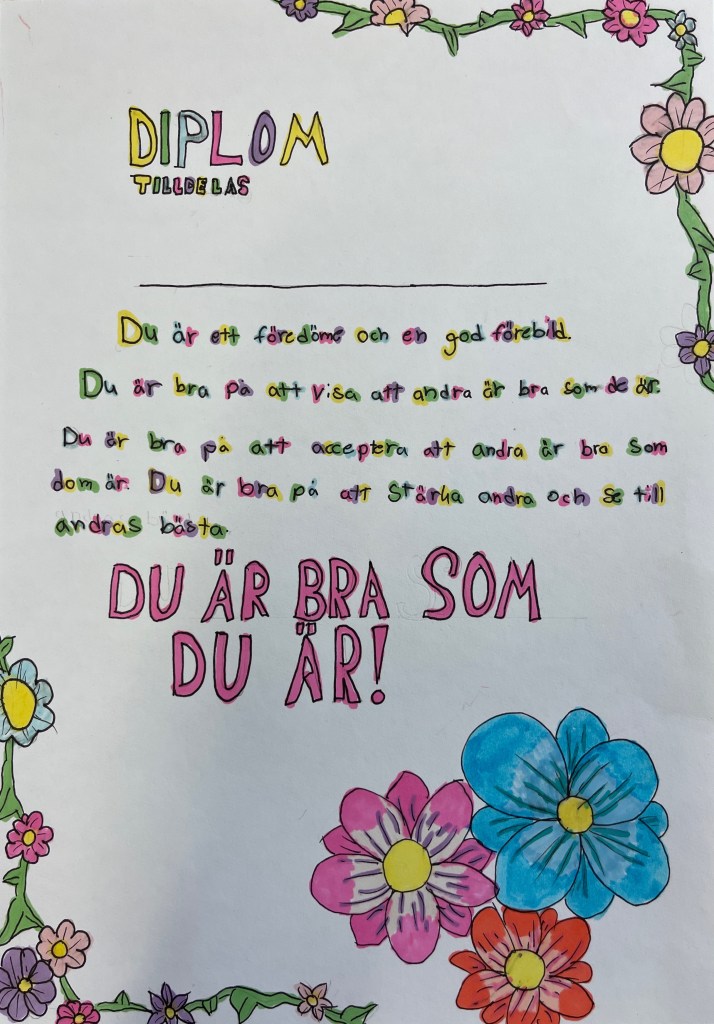 DIPLOM
TILLDELAS
Du är ett föredöme och en god förebild.
Du är bra på att visa att andra är bra som de är.
Du är bra på att acceptera att andra är bra som
dom är. Du är bra på att stärka andra och se till
andras bästa.
DU ÄR BRA SOM
DU ÄR!